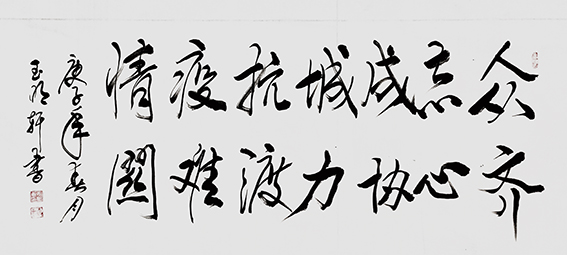 众志成城抗疫情
齐心协力渡难關
庚子年春月
玉轩書